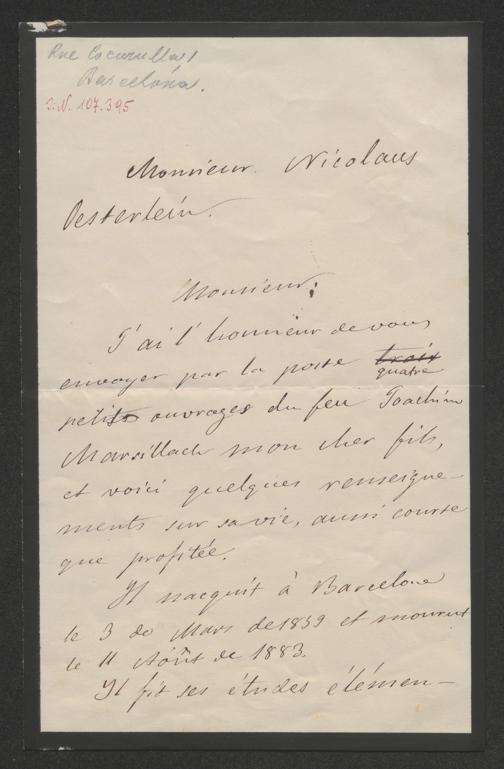 Rue Cucurulla 1
Barcelona.
I.N. 107.395
Monsieur Nicolaus
Oesterlein.
Monsieur;
J'ai l'honneur de vous
envoyer par la poste trois
quatre
petits ouvrages du feu Joachim
Marsillach mon cher fils,
et voici quelques renseigne-
ments sur sa vie, aussi courte
que profitée.
Il nacquit à Barcelone
le 3 de Mars de 1859 et mourut
le 11 Août de 1883.
Il fit ses études élémen-